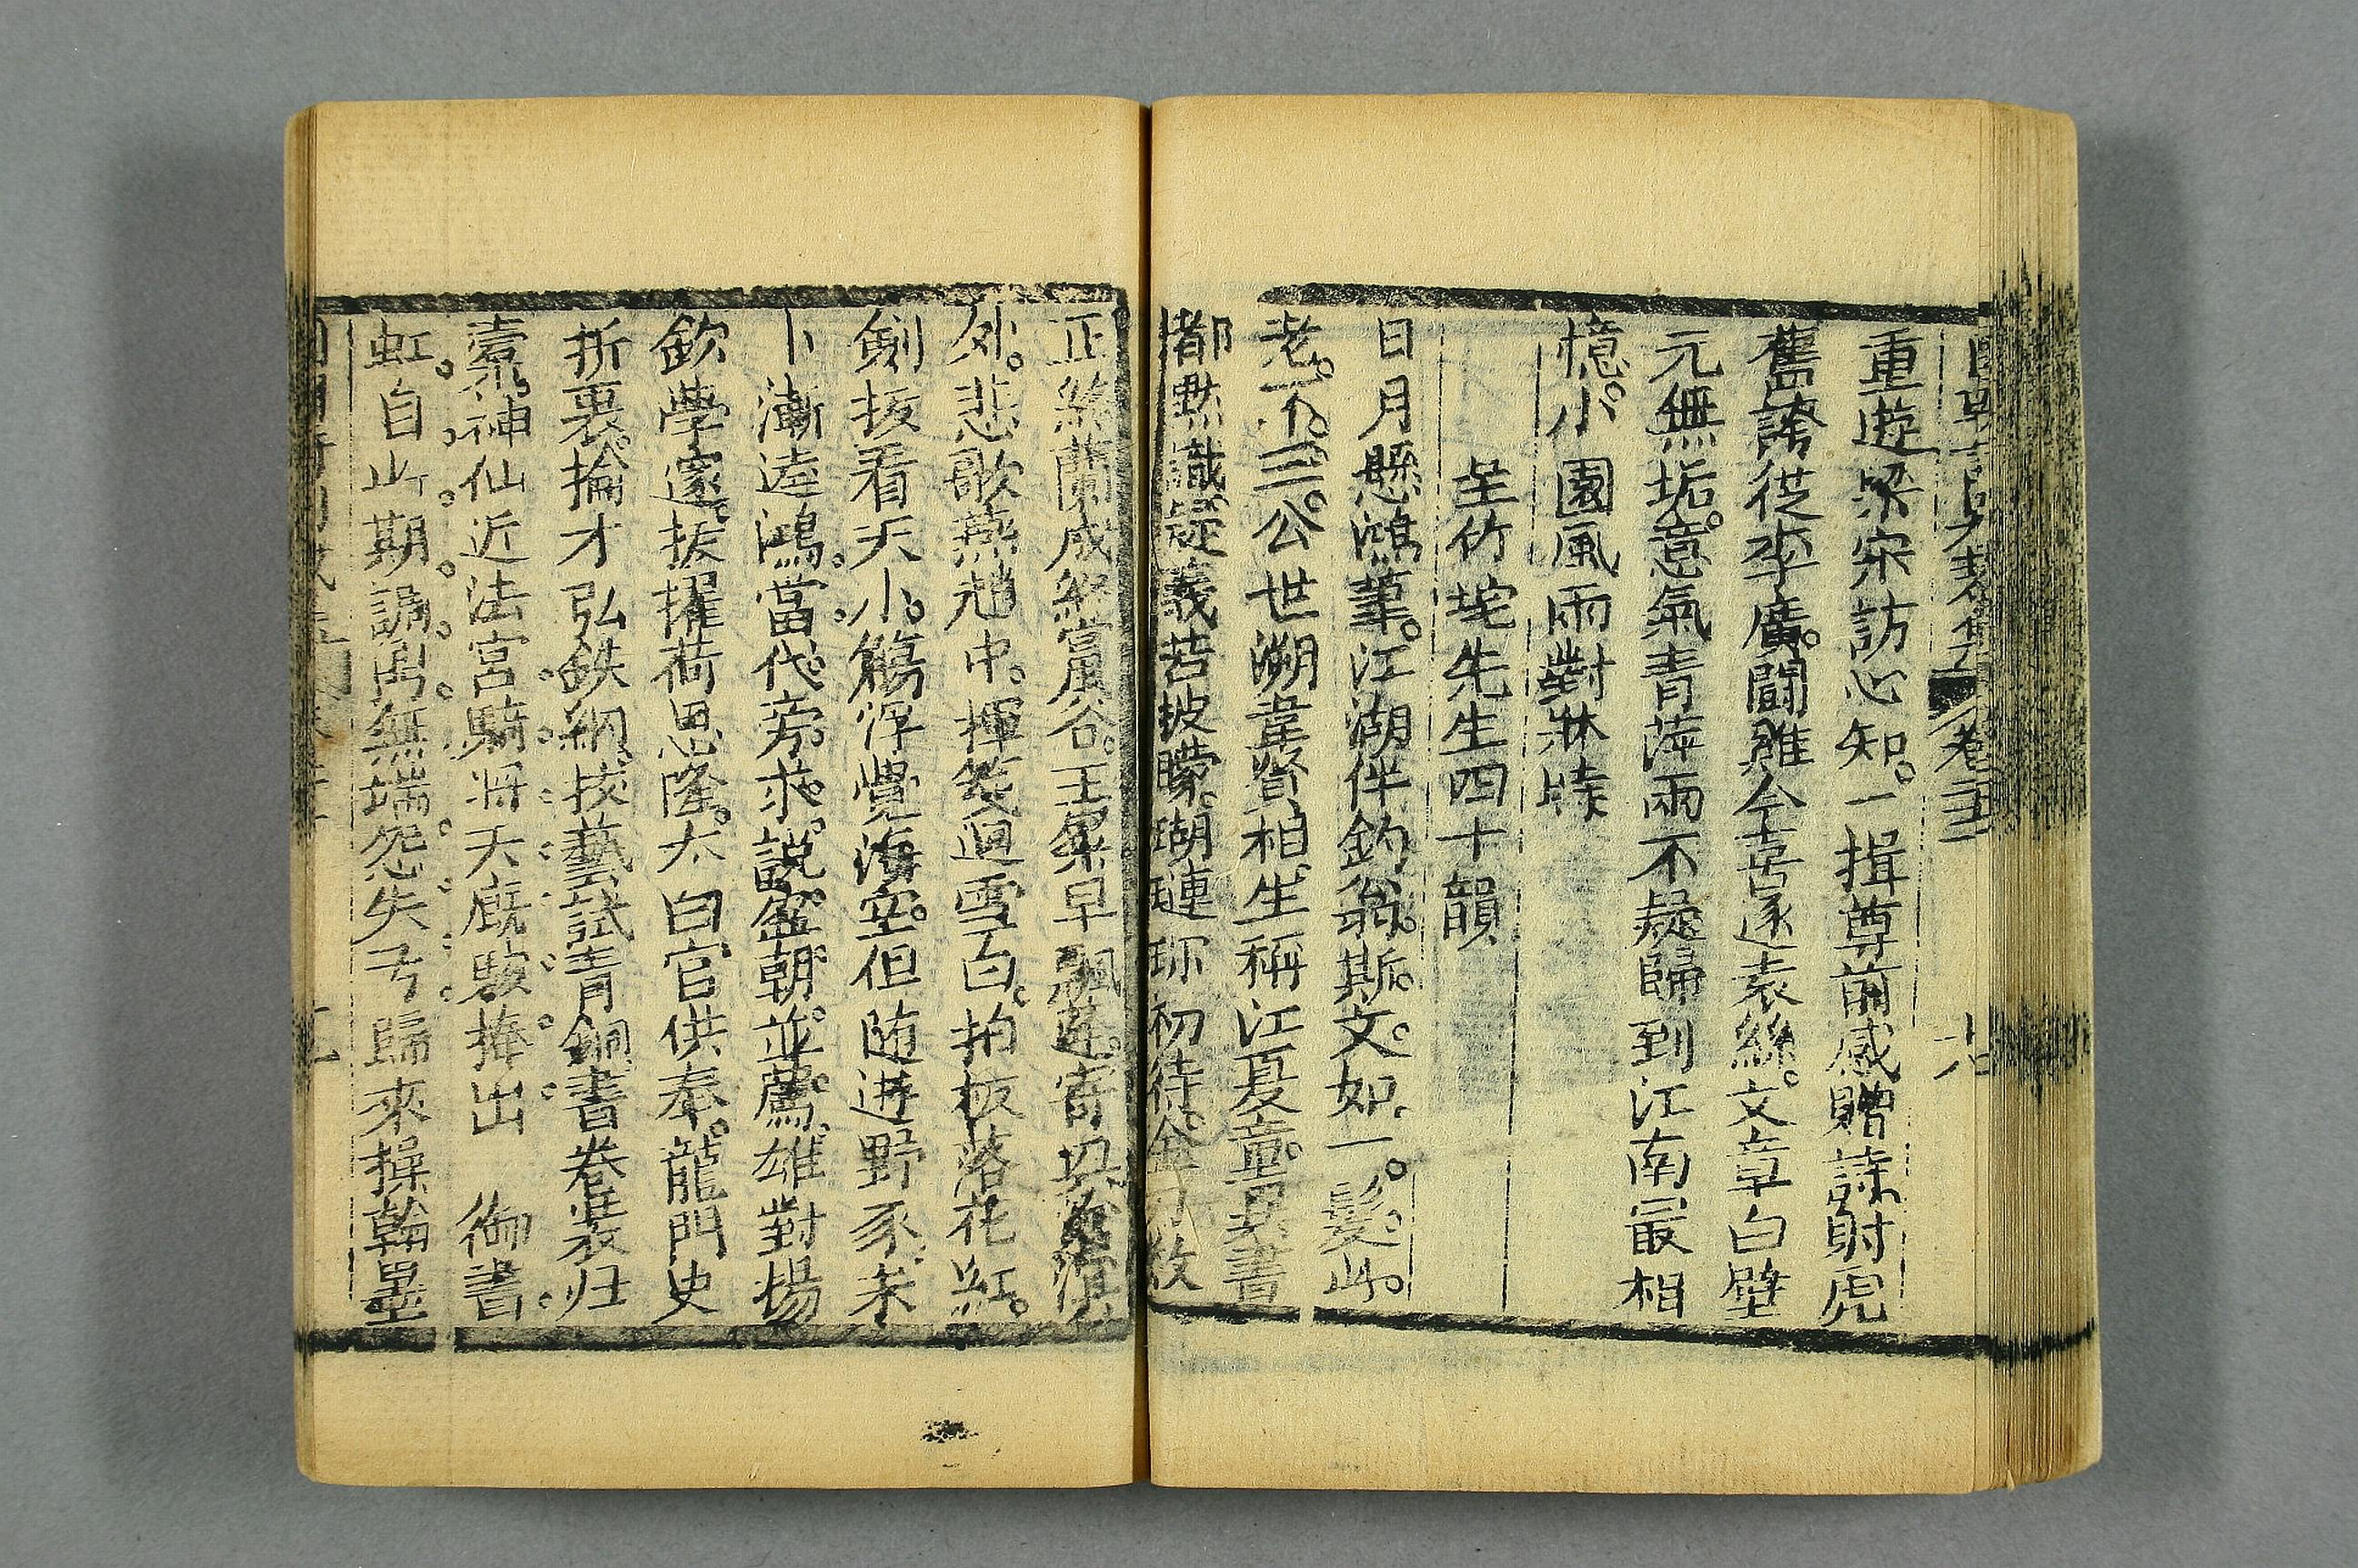 重遊梁宋訪心知。一揖尊前感贈詩射虎
舊誇從李廣。鬪雞今喜逐袁絲。文章白璧
元無垢。意氣青萍兩不疑歸到江南最相
憶。小園風雨對牀時
呈竹垞先生四十韻
日月懸鴻筆。江湖伴釣翁。斯文如一髮。此
老不三公世溯韋賢相。生稱江夏童。異書
都默識疑義若披矇。瑚璉珎初待。
正絲蘭成終賔谷。王粲早飄蓬。寄
外。悲歌燕趙中。揮箋迴雪白。拍板落花紅。
劍拔看天小。觴浮覺海空。但随遊野豕未
卜漸逵鴻。當代旁求。說盛朝並薦雄對揚
欽學邃。拔擢荷恩隆。太白官供奉。龍門史
折衷。掄才弘鉄網。挍藝試青銅書卷裝归
槖神仙近法宮騎将天廐駿捧出 御書
虹。自此期謫。無端怨失弓歸來操翰墨